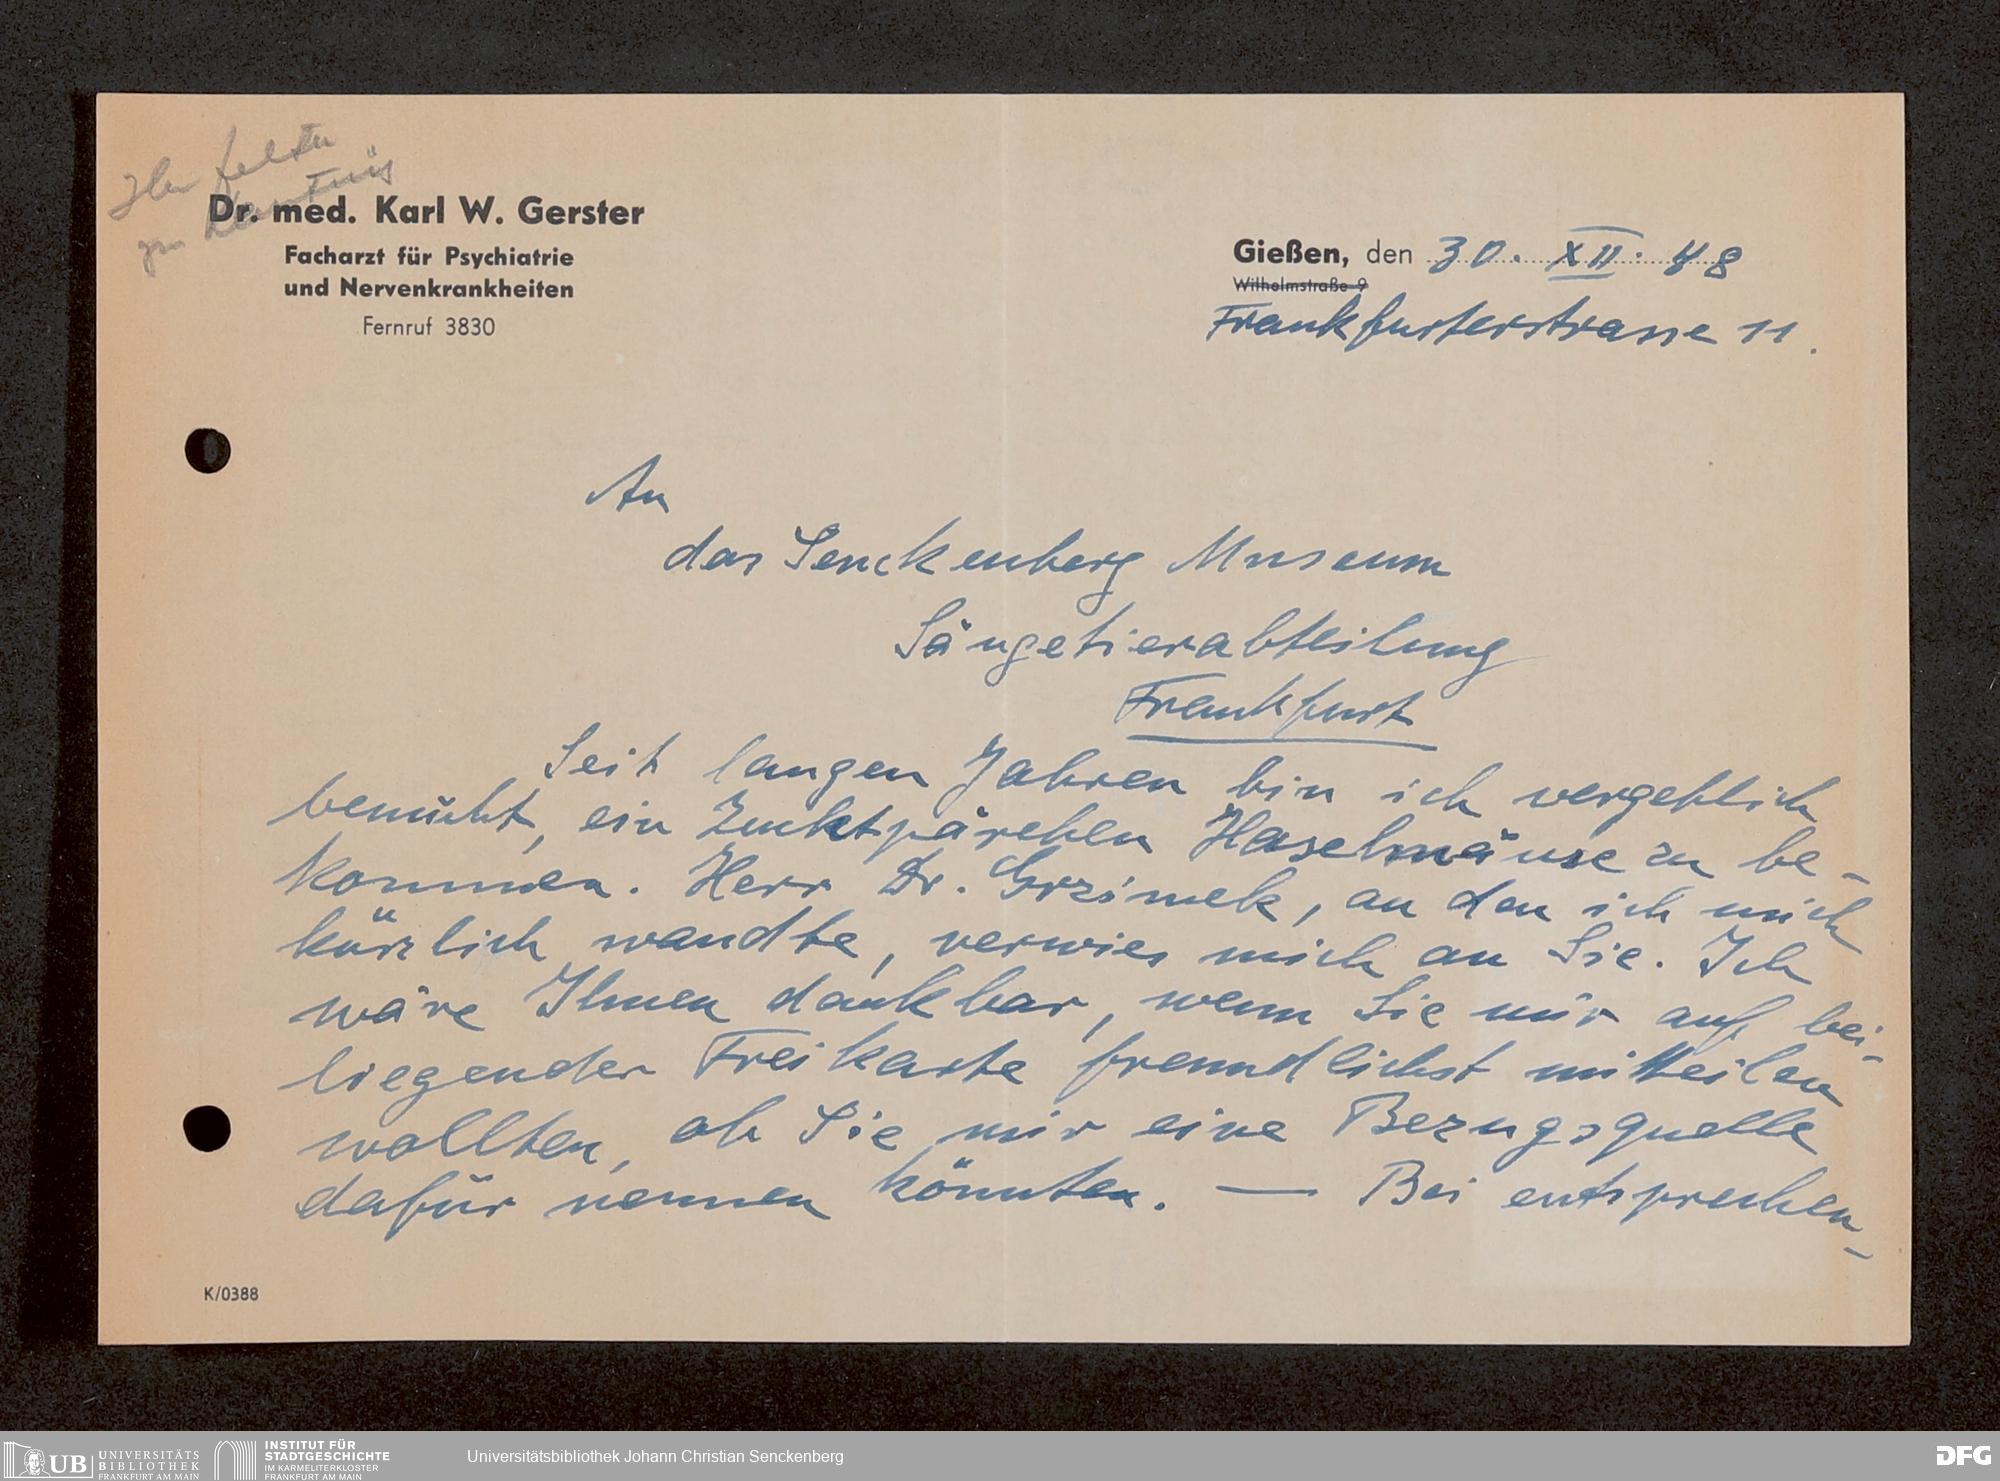 Hr Felten
zur Kenntnis
Dr. med. Karl W. Gerster
Facharzt für Psychiatrie
und Nervenkrankheiten
Fernruf 3830
Gießen, den 30. XII. 48
Wilhelmstraße 9
Frankfurterstrasse 11.
An
das Senckenberg Museum
Säugetierabteilung
Frankfurt
Seit langen Jahren bin ich vergeblich
bemüht, ein Zuchtpärchen Haselmäuse zu be-
kommen. Herr Dr. Grzimek, an den ich mich
kürzlich wandte, verwies mich an Sie. Ich
wäre Ihnen dankbar, wenn Sie mir auf bei-
liegender Freikarte freundlichst mitteilen
wollten, ob Sie mir eine Bezugsquelle
dafür nennen könnten. — Bei entsprechen-
K/0388
UB UNIVERSITÄTS
BIBLIOTHEK
FRANKFURT AM MAIN
INSTITUT FÜR
STADTGESCHICHTE
IM KARMELITERKLOSTER
FRANKFURT AM MAIN
Universitätsbibliothek Johann Christian Senckenberg
DFG